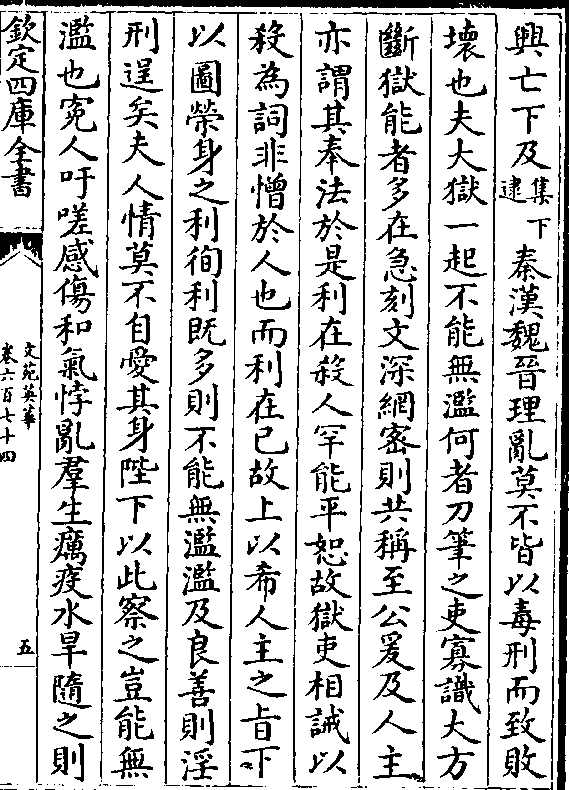 興亡下及集下逮秦漢魏晉理亂莫不皆以毒刑而致敗
壞也夫大獄一起不能無濫何者刀筆之吏寡識大方
斷獄能者多在急刻文深網密則共稱至公爰及人主
亦謂其奉法於是利在殺人罕能平恕故獄吏相誡以
殺為詞非憎於人也而利在已故上以希人主之旨下
以圖榮身之利徇利既多則不能無濫濫及良善則淫
刑逞矣夫人情莫不自愛其身陛下以此察之豈能無
濫也寃人吁嗟感傷和氣悖亂羣生癘疫水旱隨之則
欽定四庫全書
文苑英華
卷六百七十四
五